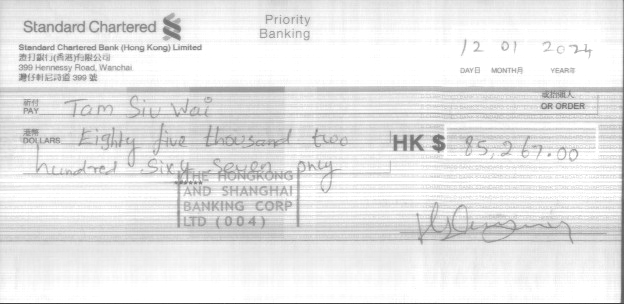 Standard Chartered
Priority
Banking
Standard Chartered Bank (Hong Kong) Limited
渣打銀行(香港)有限公司
399 Hennessy Road, Wanchai
灣仔軒尼詩道 399 號
12 01 2024
DAY日 MONTH月 YEAR年
祈付
PAY Tam Siu Wai
或抬頭人
OR ORDER
港幣
DOLLARS Eighty five thousand two
hundred sixty seven only
HK $ 85,267.00
THE HONGKONG
AND SHANGHAI
BANKING CORP
LTD (004)